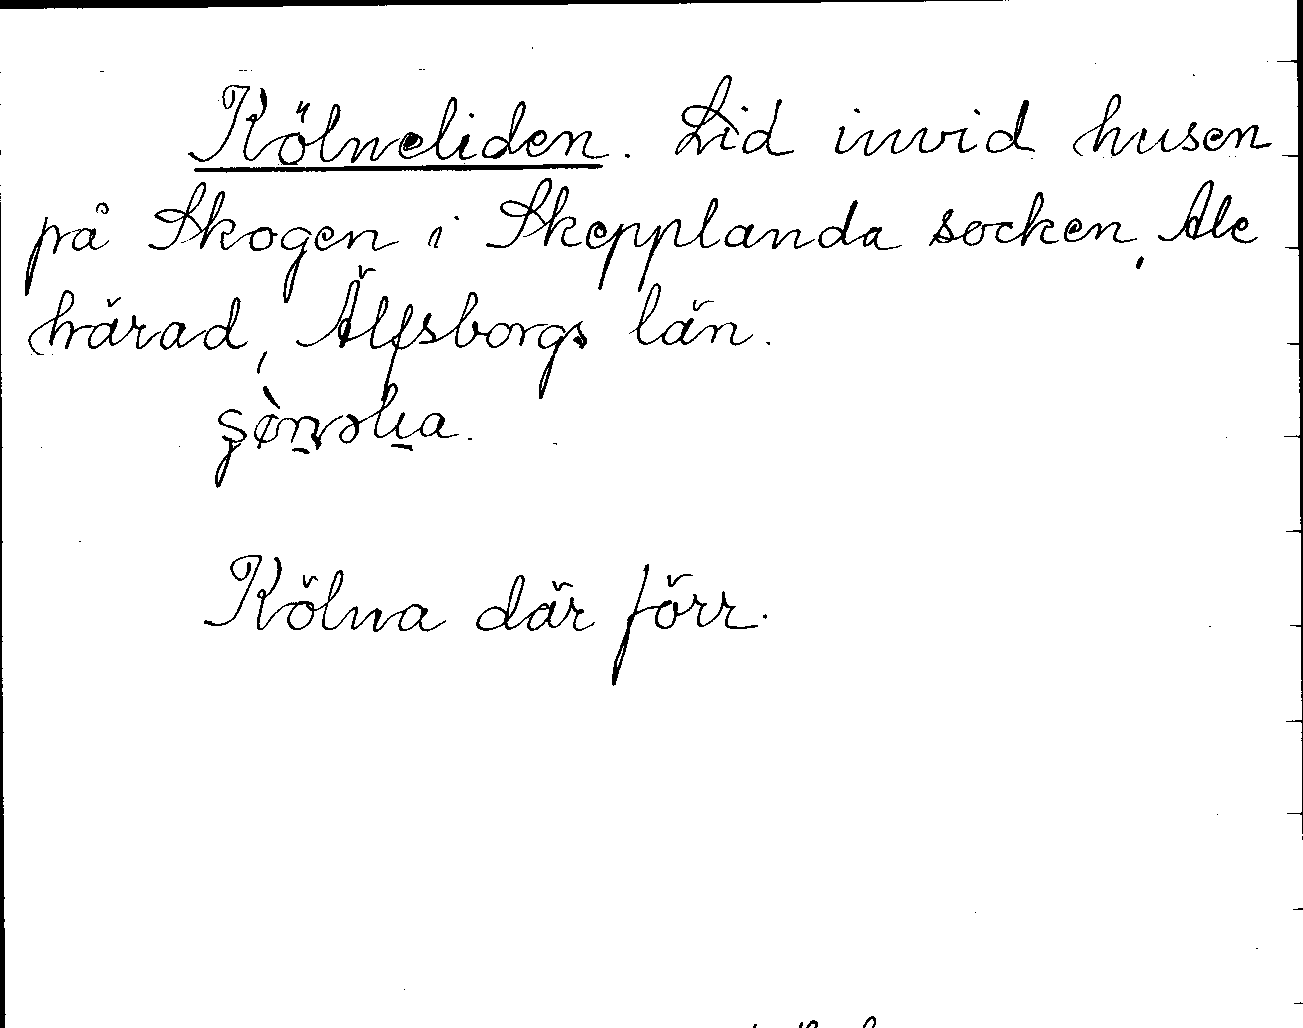 Kölneliden. Lid invid husen
på Skogen i Skepplanda socken, Ale
härad, Älfsborgs län.
Kölna där förr.